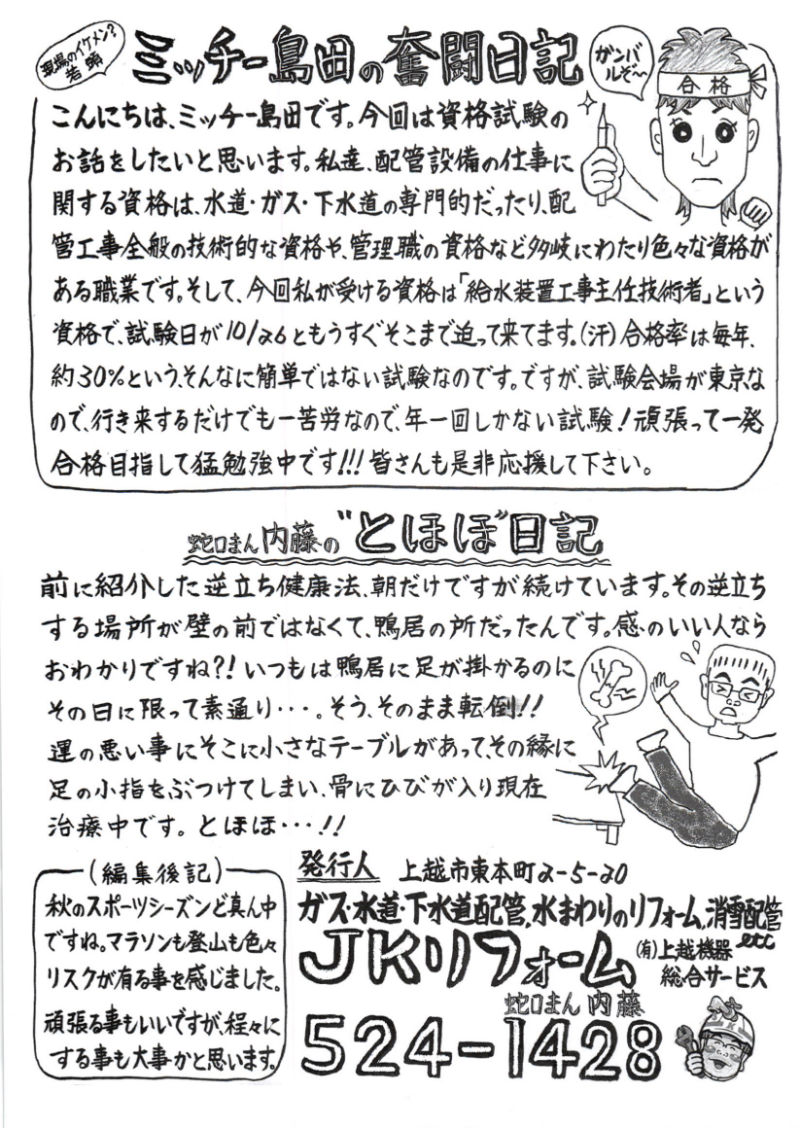 現場のイケメン?
若頭
ミッチー島田の奮闘日記
ガンバ
ルぞ〜
合格
こんにちは、ミッチー島田です。今回は資格試験の
お話をしたいと思います。私達、配管設備の仕事に
関する資格は、水道・ガス・下水道の専門的だったり、配
管工事全般の技術的な資格や、管理職の資格など多岐にわたり色々な資格が
ある職業です。そして、今回私が受ける資格は「給水装置工事主任技術者」という
資格で、試験日が10/26ともうすぐそこまで迫って来てます。(汗)合格率は毎年、
約30%という、そんなに簡単ではない試験なのです。ですが、試験会場が東京な
ので、行き来するだけでも一苦労なので、年一回しかない試験!頑張って一発
合格目指して猛勉強中です!!!皆さんも是非応援して下さい。
蛇口まん内藤の"とほほ"日記
前に紹介した逆立ち健康法、朝だけですが続けています。その逆立ち
する場所が壁の前ではなくて、鴨居の所だったんです。感のいい人なら
おわかりですね?!いつもは鴨居に足が掛かるのに
その日に限って素通り・・・。そう、そのまま転倒!!
運の悪い事にそこに小さなテーブルがあって、その縁に
足の小指をぶつけてしまい、骨にひびが入り現在
治療中です。とほほ・・・!!
(編集後記)
秋のスポーツシーズンど真ん中
ですね。マラソンも登山も色々
リスクが有る事を感じました。
頑張る事もいいですが、程々に
する事も大事かと思います。
発行人 上越市東本町2-5-20
ガス・水道・下水道配管,水まわりのリフォーム,消雪配管
etc
JKリフォーム
(有)上越機器
総合サービス
蛇口まん 内藤
524-1428